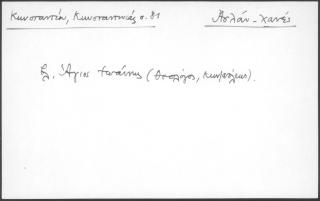 Κωνσταντῖν, Κωνσταντινιάς σ. 81
Ἀσλάν-χανές
Ἅγιος Ἰωάννης (Θεολόγος, Κων/πόλεως).